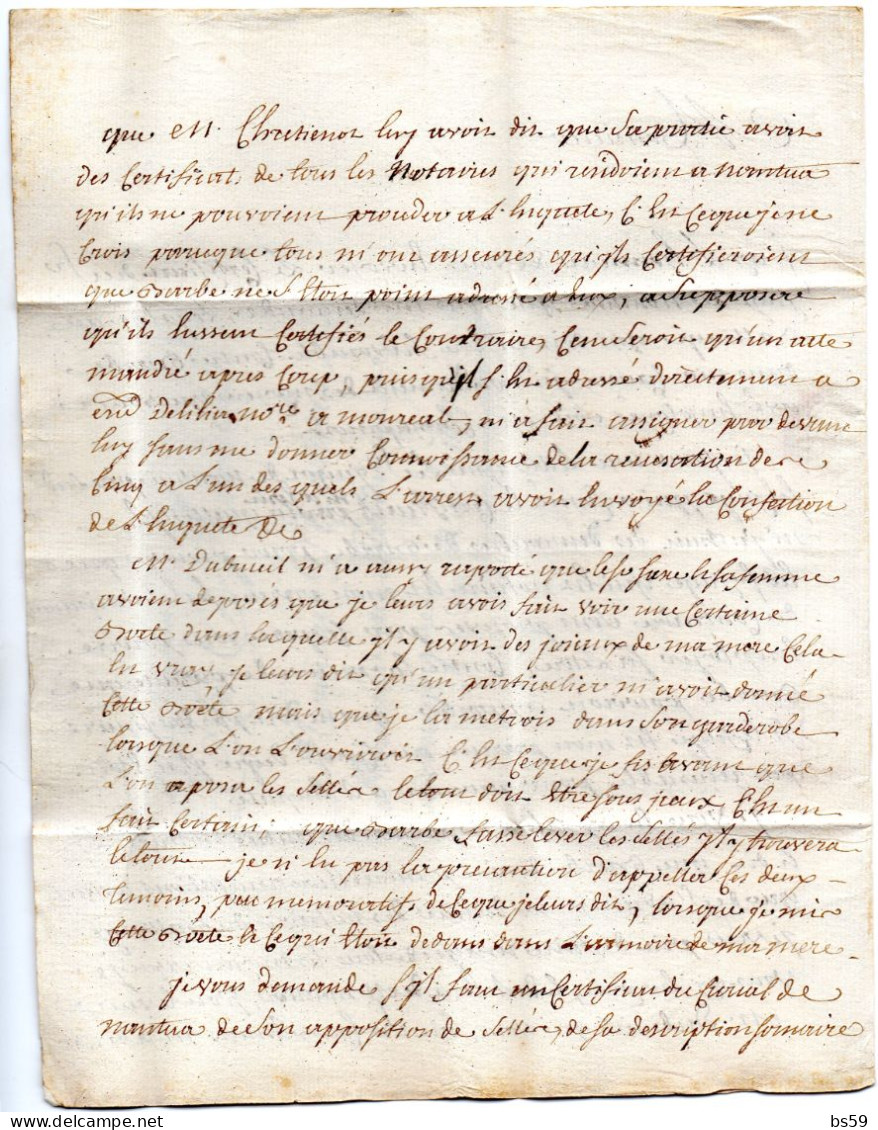 que Mr. Chretienot luy avoit dit que Sa partie avoit
des Certificats de tous les Notaires qui residoient a nantua
qu'ils ne pouvoient proceder a L'enquete, C'est Ceque je ne
Crois parceque tous m'ont asseurés qu'ils Certifieroient
que Barbe ne S'etoit point adressé a Eux, a Supposer
qu'ils Eussent Certifiés le Contraire, Ce ne Seroit qu'un acte
mandié apres Coup, puisqu'il S'est adressé directement a
Delilia nore a monreal, m'a fait assigner par devant
luy Sans me donner Connoissance de la revocation des
Cinq a L'un des quels L'arrest avoit Envoyé la Confection
de L'Enquete
Mr. Dubreuil m'a aussy raporté que et Sa femme
avoient deposés que je leurs avois fait voir une Certaine
Boete dans laquelle il y avoit des joiaux de ma mere Cela
Est vray, je leurs dit qu'un particulier m'avoit donné
Cette Boete mais que je la metrois dans Son garderobe
lorsque L'on L'ouvriroit C'Est Ceque je fis avant que
L'on aposa les Sellés le tout doit Etre Sous jceux C'Est un
fait Certain; que Barbe fasse lever les Sellés jl y trouvera
le tout je n'Eu pas la precaution d'appeller Ces deux
temoins, pour memoratifs de Ceque je leurs dit, lorsque je mis
Cette Boete Et Ce qui Etoit dedans dans L'armoire de ma mere
je vous demande S'jl faut un Certificat du Curial de
nantua de Son apposition de Sellés, de Sa description Somaire
bs59